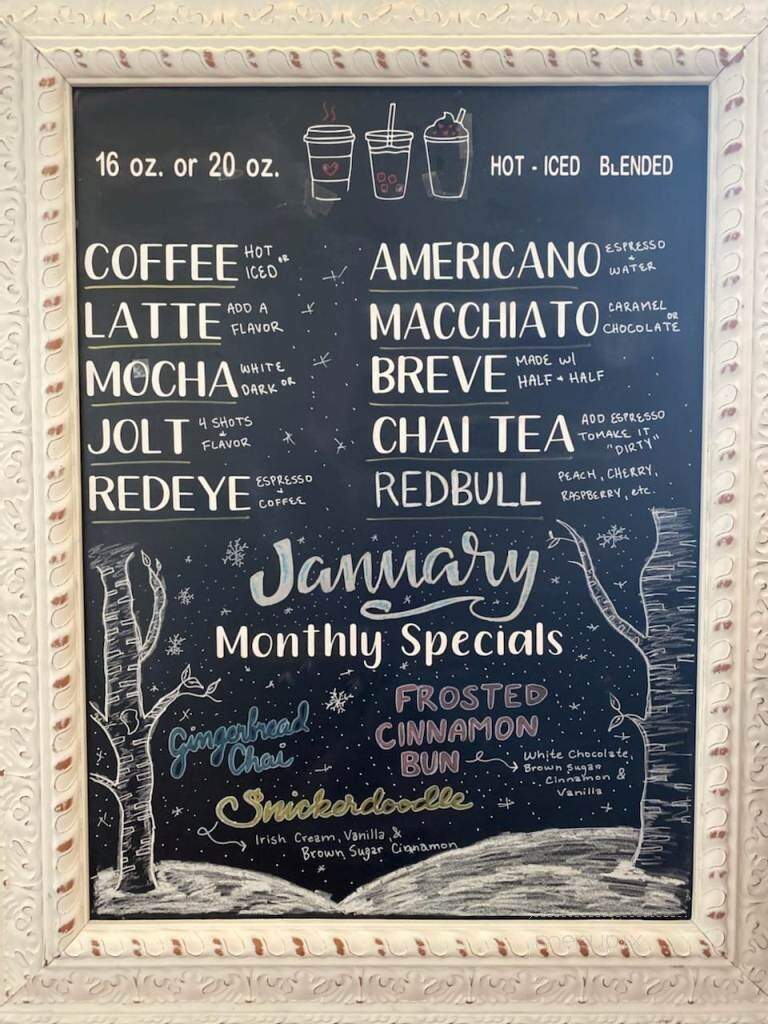 16 oz. or 20 oz.
HOT - ICED BLENDED
COFFEE HOT or ICED
LATTE ADD A FLAVOR
MOCHA WHITE or DARK
JOLT 4 SHOTS + FLAVOR
REDEYE ESPRESSO + COFFEE
AMERICANO ESPRESSO + WATER
MACCHIATO CARAMEL or CHOCOLATE
BREVE MADE W/ HALF + HALF
CHAI TEA ADD ESPRESSO TO MAKE IT "DIRTY"
REDBULL PEACH, CHERRY, RASPBERRY, etc.
January
Monthly Specials
Gingerbread
Chai
FROSTED
CINNAMON
BUN
White Chocolate,
Brown Sugar
Cinnamon &
Vanilla
Snickerdoodle
Irish Cream, Vanilla &
Brown Sugar Cinnamon